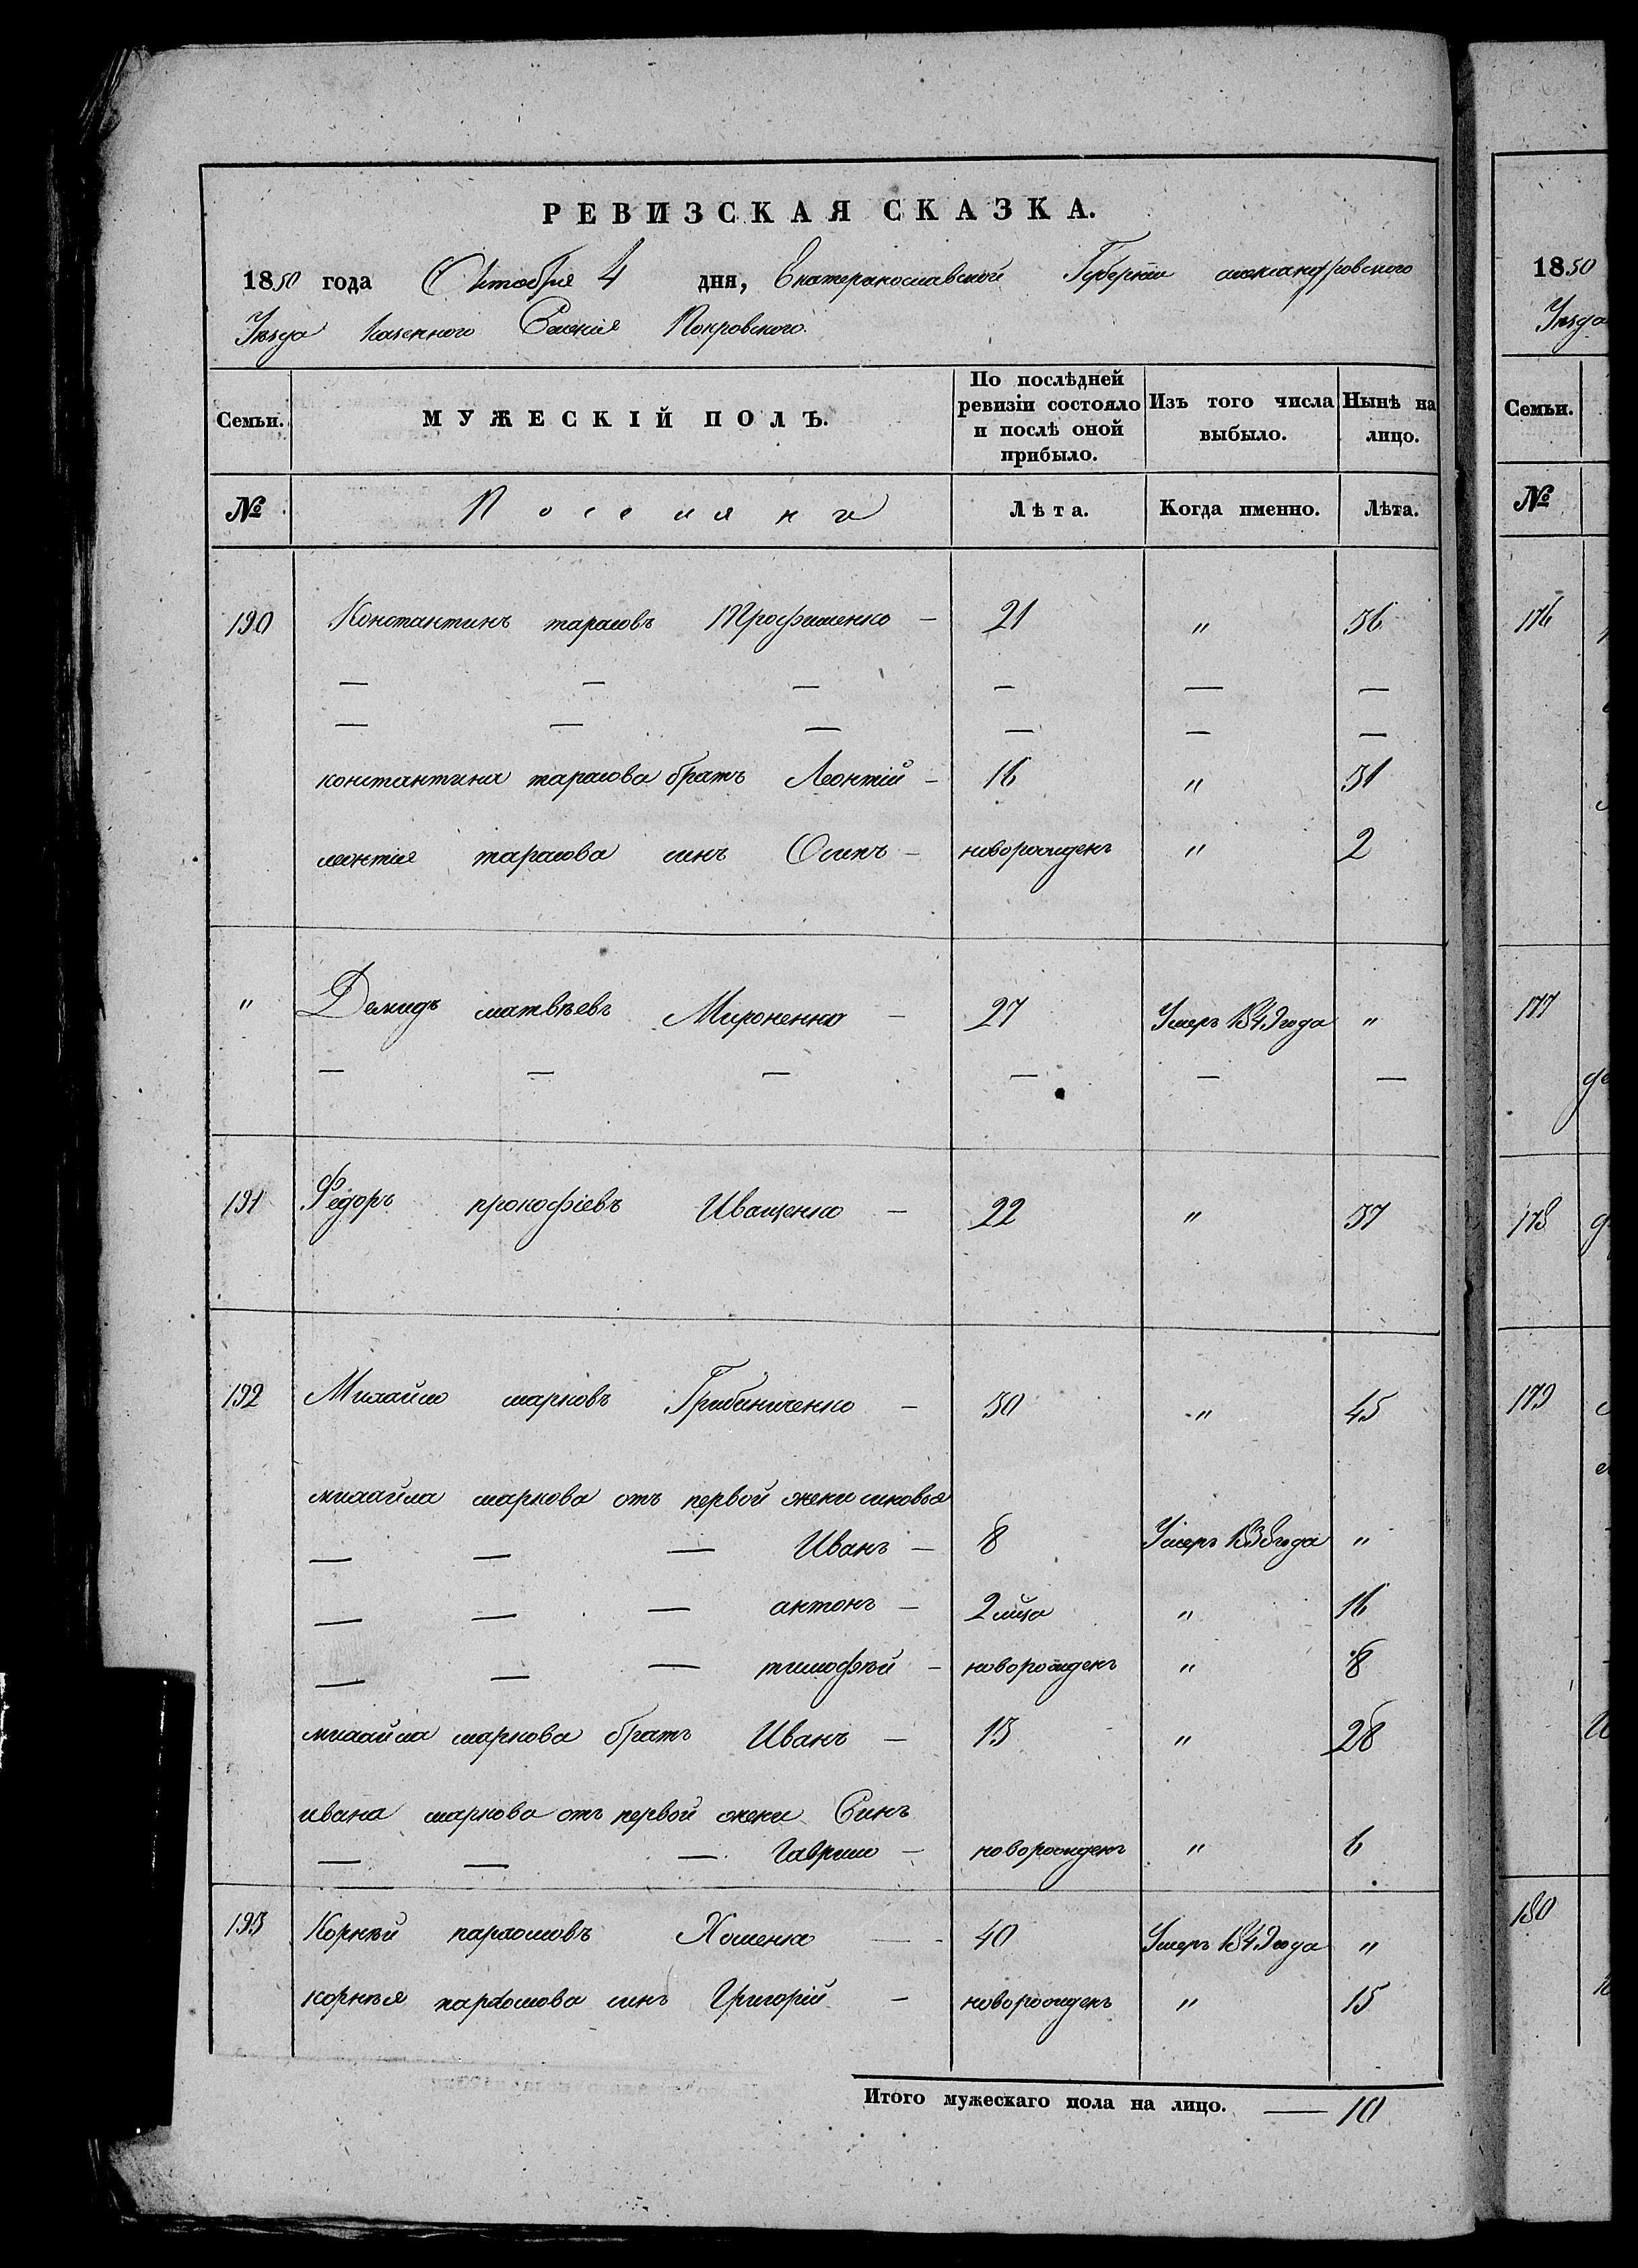 РЕВИЗСКАЯ СКАЗКА.
1850 года Октября 4 дня, Екатеринославской Губерніи александровского
Уѣзда казенного Селенія Покровского.
Семьи. МУЖЕСКІЙ ПОЛЪ. По послѣдней ревизіи состояло и послѣ оной прибыло. Изъ того числа выбыло. Нынѣ на лицо.
№ Поселяне Лѣта. Когда именно. Лѣта.
190 Константинъ тарасовъ Трофименко — 21 " 36
— — — — — —
— — — — — —
константина тарасова братъ Леонтій — 16 " 31
леонтія тарасова синъ Осипъ — новорожденъ " 2
" Демидъ матвѣевъ Мироненко — 27 Умеръ 1849 года "
— — — — — —
191 Федоръ прокофіевъ Иващенко — 22 " 37
192 Михайло марковъ Грибиниченко — 30 " 45
михайла маркова отъ первой жени сыновья
— — — Иванъ — 8 Умеръ 1838 года "
— — — антонъ — 2 мца " 16
— — — тимофѣй — новорожденъ " 8
михайла маркова братъ Иванъ — 13 " 28
ивана маркова отъ первой жени Синъ
— — — Гаврило — новорожденъ " 6
193 Корнѣй пархомовъ Хоменко — 40 Умеръ 1849 года "
корнѣя пархомова синъ Григорій — новорожденъ " 15
Итого мужескаго пола на лицо. — 10
1850
Уѣзда
Семьи.
№
176
177
178
179
180